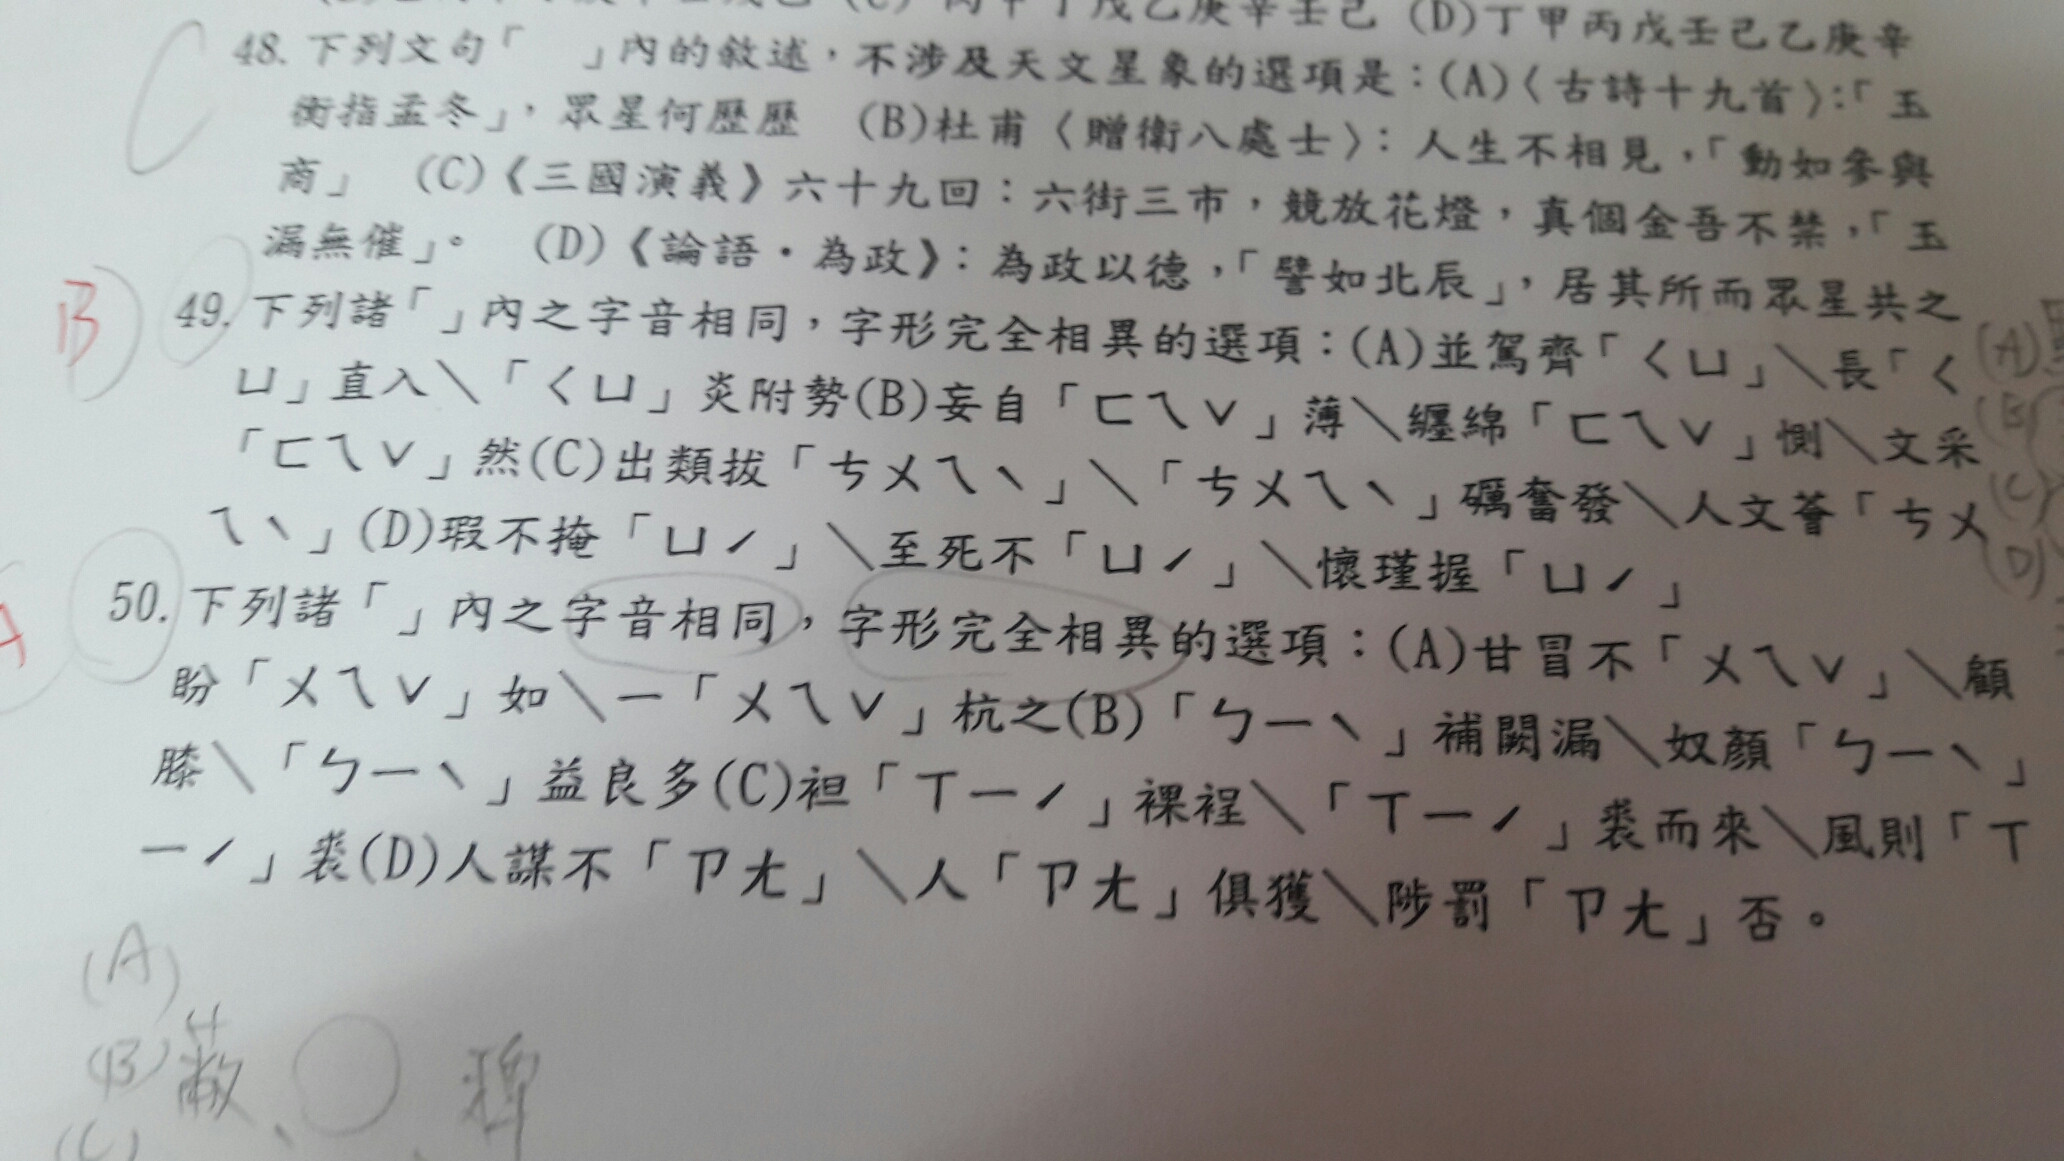 丙甲丁戊乙庚辛壬己 (D)丁甲丙戊壬己乙庚辛
C 48. 下列文句「 」內的敘述，不涉及天文星象的選項是：(A)〈古詩十九首〉：「玉
衡指孟冬」，眾星何歷歷 (B)杜甫〈贈衛八處士〉：人生不相見，「動如參與
商」 (C)《三國演義》六十九回：六街三市，競放花燈，真個金吾不禁，「玉
漏無催」。 (D)《論語·為政》：為政以德，「譬如北辰」，居其所而眾星共之
B 49. 下列諸「」內之字音相同，字形完全相異的選項：(A)並駕齊「ㄑㄩ」╲長「ㄑ
ㄩ」直入╲「ㄑㄩ」炎附勢(B)妄自「ㄈㄟˇ」薄╲纏綿「ㄈㄟˇ」惻╲文采
「ㄈㄟˇ」然(C)出類拔「ㄘㄨㄟˋ」╲「ㄘㄨㄟˋ」礪奮發╲人文薈「ㄘㄨ
ㄟˋ」(D)瑕不掩「ㄩˊ」╲至死不「ㄩˊ」╲懷瑾握「ㄩˊ」
A 50. 下列諸「」內之字音相同，字形完全相異的選項：(A)甘冒不「ㄨㄟˇ」╲顧
盼「ㄨㄟˇ」如╲一「ㄨㄟˇ」杭之(B)「ㄅㄧˋ」補闕漏╲奴顏「ㄅㄧˋ」
膝╲「ㄅㄧˋ」益良多(C)袒「ㄒㄧˊ」裸裎╲「ㄒㄧˊ」裘而來╲風則「ㄒ
ㄧˊ」裘(D)人謀不「ㄗㄤ」╲人「ㄗㄤ」俱獲╲陟罰「ㄗㄤ」否。
(A)
(B)
(C)
(D)
(A)
(B) 蔽、○、裨
(C)